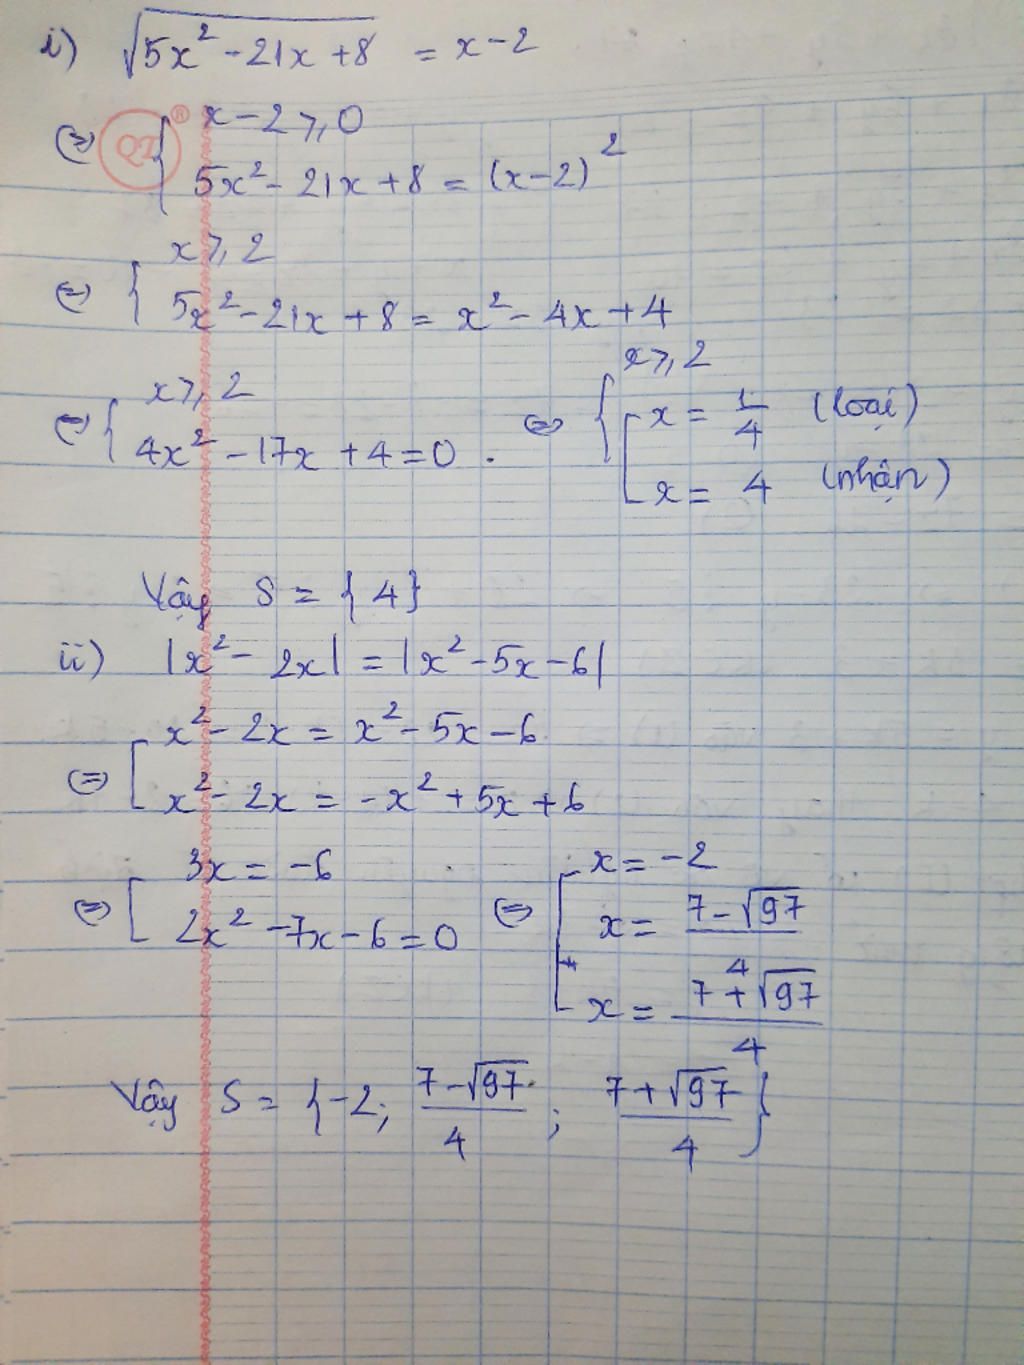 i) √(5x² - 21x + 8) = x - 2
QT ®
⇔ { x - 2 ⩾ 0
5x² - 21x + 8 = (x - 2)²
⇔ { x ⩾ 2
5x² - 21x + 8 = x² - 4x + 4
⇔ { x ⩾ 2
4x² - 17x + 4 = 0 .
⇔ { x ⩾ 2
[ x = 1/4 (loại)
x = 4 (nhận)
Vậy S = {4}
ii) |x² - 2x| = |x² - 5x - 6|
⇔ [ x² - 2x = x² - 5x - 6
x² - 2x = -x² + 5x + 6
⇔ [ 3x = -6
2x² - 7x - 6 = 0
⇔ [ x = -2
x = (7 - √97)/4
x = (7 + √97)/4
Vậy S = {-2; (7 - √97)/4 ; (7 + √97)/4}